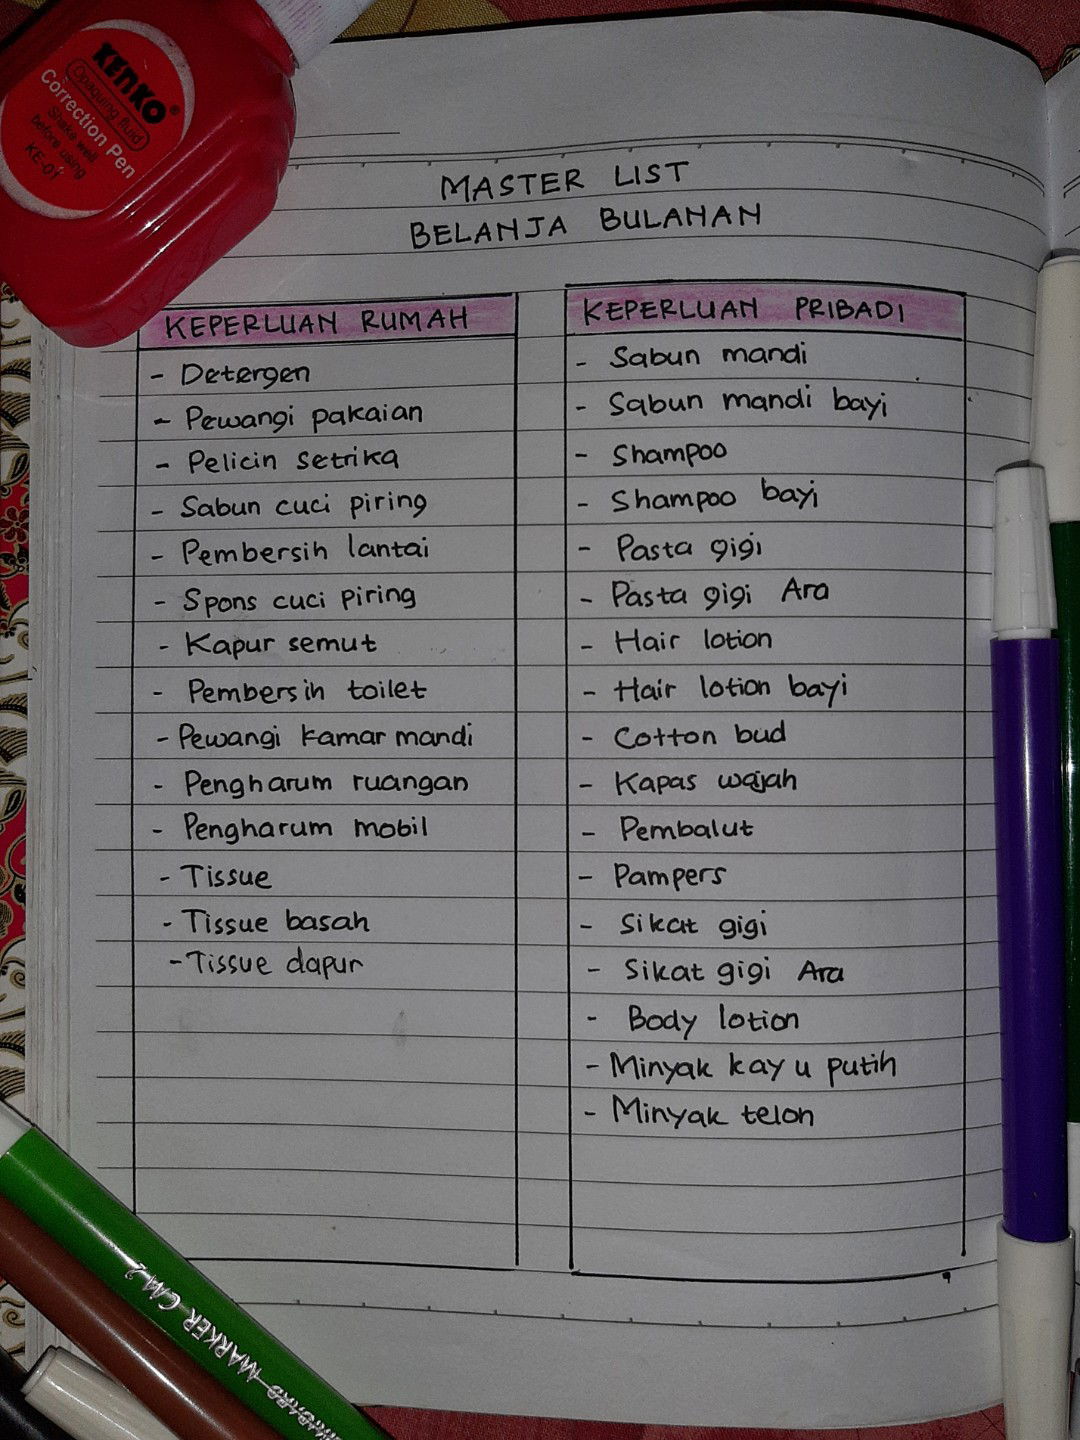 KENKO®
Opaquing fluid
Correction Pen
Shake well
before using
KE-01
MASTER LIST
BELANJA BULANAN
KEPERLUAN RUMAH
- Detergen
- Pewangi pakaian
- Pelicin setrika
- Sabun cuci piring
- Pembersih lantai
- Spons cuci piring
- Kapur semut
- Pembersih toilet
- Pewangi kamar mandi
- Pengharum ruangan
- Pengharum mobil
- Tissue
- Tissue basah
- Tissue dapur
KEPERLUAN PRIBADI
- Sabun mandi
- Sabun mandi bayi
- Shampoo
- Shampoo bayi
- Pasta gigi
- Pasta gigi Ara
- Hair lotion
- Hair lotion bayi
- Cotton bud
- Kapas wajah
- Pembalut
- Pampers
- Sikat gigi
- Sikat gigi Ara
- Body lotion
- Minyak kayu putih
- Minyak telon
MARKER CM 2